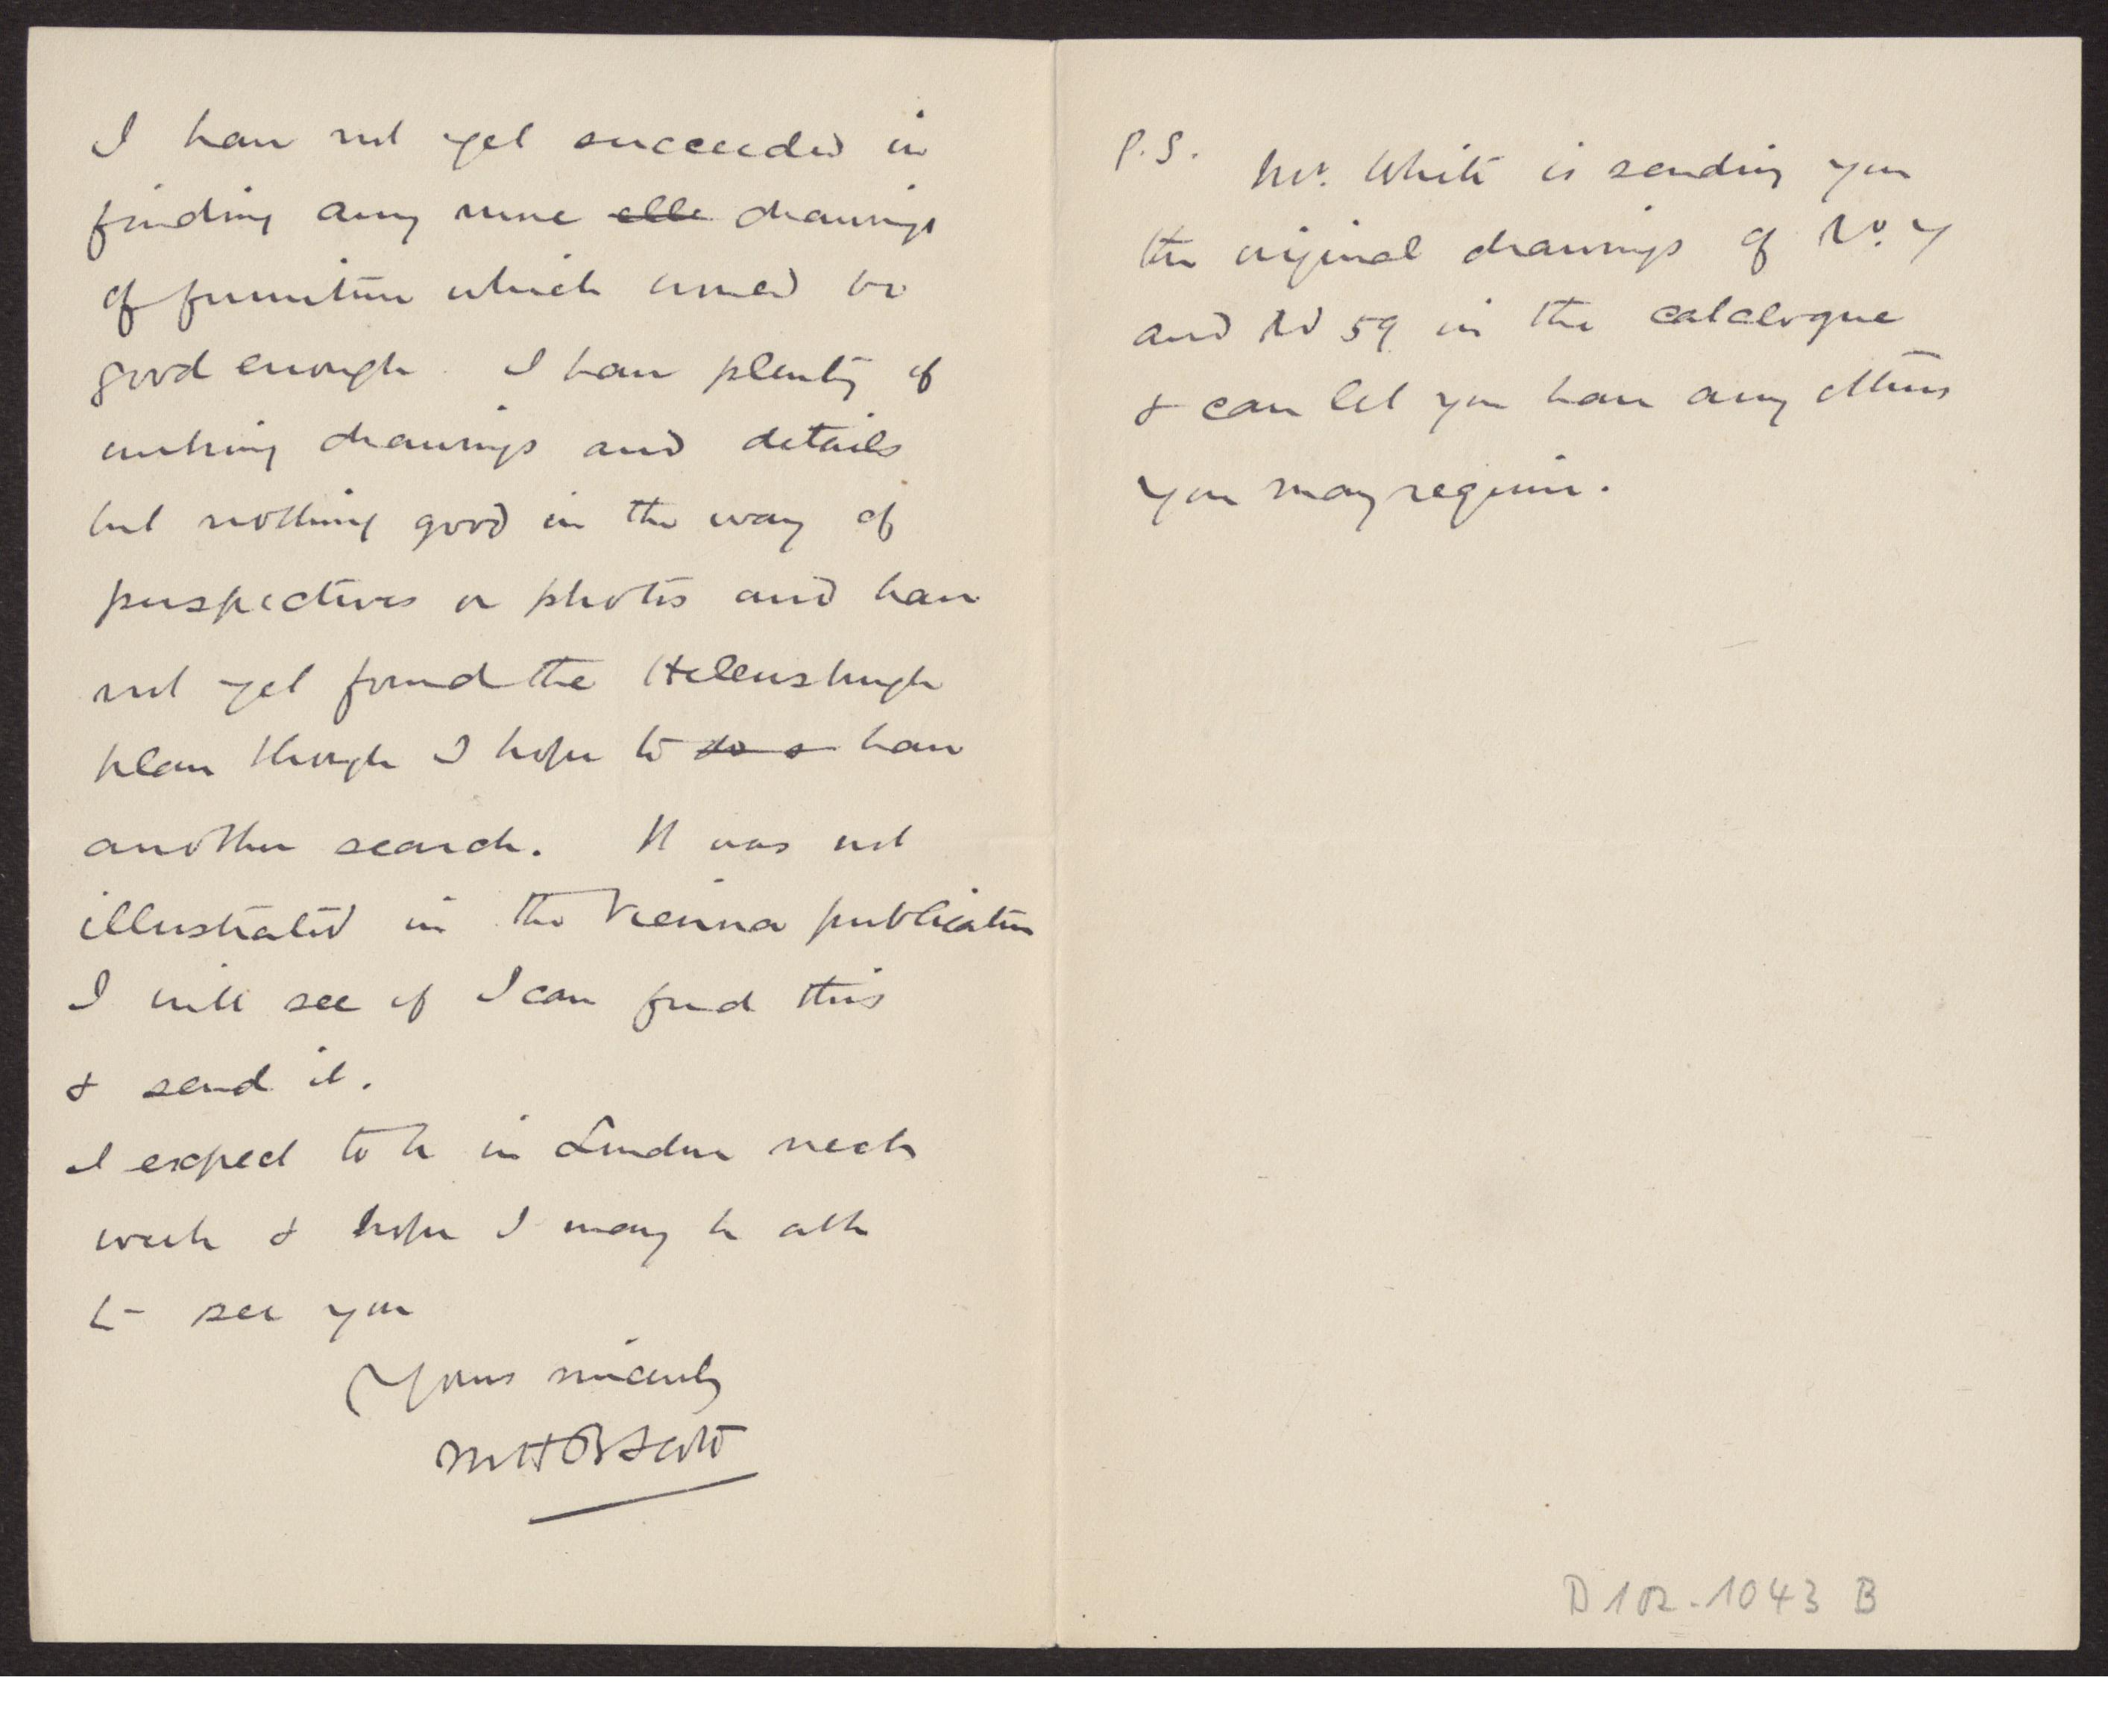 I have not yet succeeded in
finding any more elle drawings
of furniture which would be
good enough. I have plenty of
working drawings and details
but nothing good in the way of
perspectives or photos and have
not yet found the Helensburgh
plan though I hope to do s have
another search. It was not
illustrated in the Vienna publication
I will see if I can find this
& send it.
I expect to be in London next
week & hope I may be able
to see you
Yours sincerely
MHBScott
P.S. Mr. White is sending you
the original drawings of No. 7
and No 59 in the catalogue
& can let you have any others
you may require.
D 102-1043 B